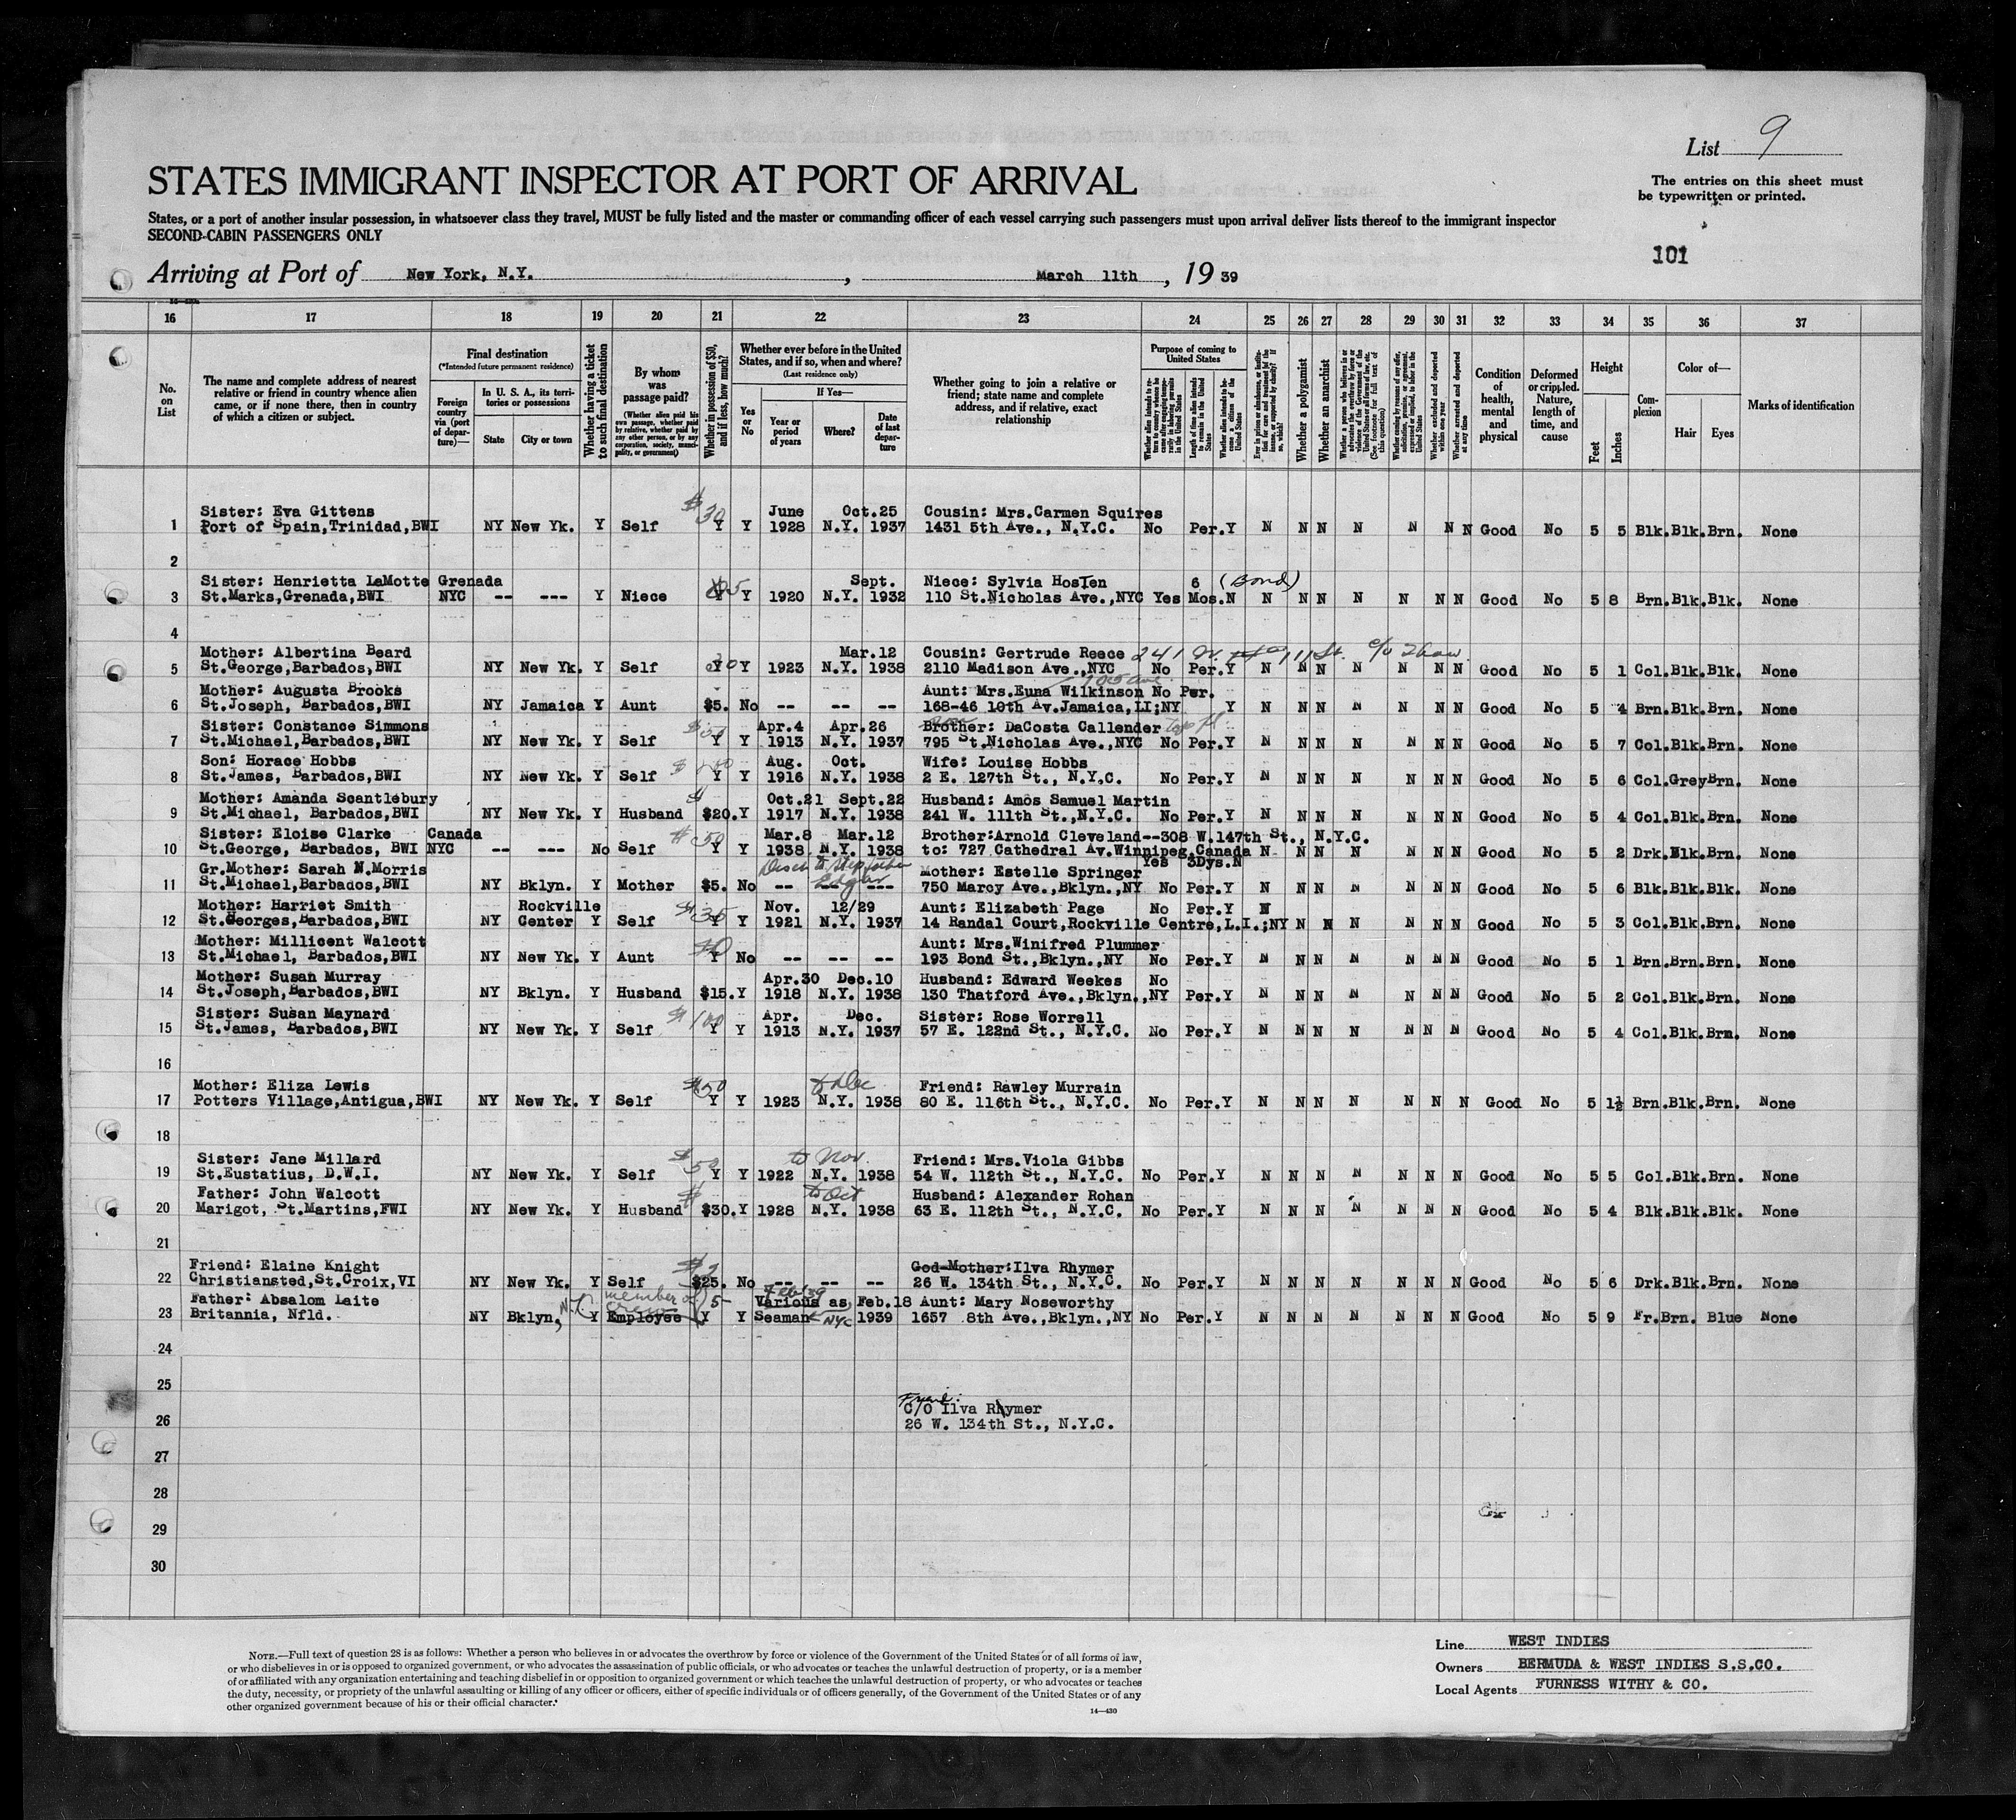 List 9
STATES IMMIGRANT INSPECTOR AT PORT OF ARRIVAL
The entries on this sheet must
be typewritten or printed.
States, or a port of another insular possession, in whatsoever class they travel, MUST be fully listed and the master or commanding officer of each vessel carrying such passengers must upon arrival deliver lists thereof to the immigrant inspector
SECOND-CABIN PASSENGERS ONLY
101
Arriving at Port of New York, N.Y. , March 11th , 19 39
16 17 18 19 20 21 22 23 24 25 26 27 28 29 30 31 32 33 34 35 36 37
No. on List
The name and complete address of nearest relative or friend in country whence alien came, or if none there, then in country of which a citizen or subject.
Final destination
(*Intended future permanent residence)
Foreign country via (port of departure)—
In U. S. A., its territories or possessions
State
City or town
Whether having a ticket to such final destination
By whom was passage paid?
(Whether alien paid his own passage, whether paid by relative, whether paid by any other person, or by any corporation, society, municipality, or government)
Whether in possession of $50, and if less, how much?
Whether ever before in the United States, and if so, when and where?
(Last residence only)
Yes or No
If Yes—
Year or period of years
Where?
Date of last departure
Whether going to join a relative or friend; state name and complete address, and if relative, exact relationship
Purpose of coming to United States
Length of time alien intends to remain in the United States
Whether alien intends to become a citizen of the United States
Whether a polygamist
Whether an anarchist
Whether excluded and deported within one year
Whether arrested and deported at any time
Condition of health, mental and physical
Deformed or crippled. Nature, length of time, and cause
Height
Feet
Inches
Complexion
Color of—
Hair
Eyes
Marks of identification
Sister: Eva Gittens $30 June Oct.25 Cousin: Mrs.Carmen Squires
1 Port of Spain,Trinidad,BWI NY New Yk. Y Self Y Y 1928 N.Y. 1937 1431 5th Ave., N.Y.C. No Per.Y N N N N N N N Good No 5 5 Blk.Blk.Brn. None
2
Sister: Henrietta LaMotte Grenada Sept. Niece: Sylvia Hosten 6 (Bond)
3 St.Marks,Grenada,BWI NYC -- --- Y Niece Y Y 1920 N.Y. 1932 110 St.Nicholas Ave.,NYC Yes Mos.N N N N N N N N Good No 5 8 Brn.Blk.Blk. None
4
Mother: Albertina Beard Mar.12 Cousin: Gertrude Reece 241 W. 111 St. c/o Shaw
5 St.George,Barbados,BWI NY New Yk. Y Self Y Y 1923 N.Y. 1938 2110 Madison Ave.,NYC No Per.Y N N N N N N N Good No 5 1 Col.Blk.Blk. None
Mother: Augusta Brooks Aunt: Mrs.Euna Wilkinson No Per. 105 ave.
6 St.Joseph, Barbados,BWI NY Jamaica Y Aunt $5. No -- -- -- 168-46 10th Av.Jamaica,LI;NY Y N N N N N N N Good No 5 4 Brn.Blk.Brn. None
Sister: Constance Simmons $50 Apr.4 Apr.26 Brother: DaCosta Callender
7 St.Michael,Barbados,BWI NY New Yk. Y Self Y Y 1913 N.Y. 1937 795 St.Nicholas Ave.,NYC No Per.Y N N N N N N N Good No 5 7 Col.Blk.Brn. None
Son: Horace Hobbs Aug. Oct. Wife: Louise Hobbs
8 St.James, Barbados,BWI NY New Yk. Y Self Y Y 1916 N.Y. 1938 2 E. 127th St., N.Y.C. No Per.Y N N N N N N N Good No 5 6 Col.GreyBrn. None
Mother: Amanda Scantlebury Oct.21 Sept.22 Husband: Amos Samuel Martin
9 St.Michael, Barbados,BWI NY New Yk. Y Husband $20.Y 1917 N.Y. 1938 241 W. 111th St.,N.Y.C. No Per.Y N N N N N N N Good No 5 4 Col.Blk.Brn. None
Sister: Eloise Clarke Canada $50 Mar.8 Mar.12 Brother:Arnold Cleveland--308 W.147th St., N.Y.C.
10 St.George, Barbados, BWI NYC -- --- No Self Y Y 1938 N.Y. 1938 to: 727 Cathedral Av.Winnipeg,Canada N N N N N N N Good No 5 2 Drk.Blk.Brn. None
Gr.Mother: Sarah N.Morris Disch to step father Edgar Mother: Estelle Springer Yes 3Dys.N
11 St.Michael,Barbados,BWI NY Bklyn. Y Mother $5. No -- --- 750 Marcy Ave.,Bklyn.,NY No Per.Y N N N N N N N Good No 5 6 Blk.Blk.Blk. None
Mother: Harriet Smith Rockville $35 Nov. 12/29 Aunt: Elizabeth Page No Per.Y N
12 St.Georges,Barbados,BWI NY Center Y Self Y Y 1921 N.Y. 1937 14 Randal Court,Rockville Centre,L.I.;NY N N N N N N Good No 5 3 Col.Blk.Brn. None
Mother: Millicent Walcott $0 Aunt: Mrs.Winifred Plummer
13 St.Michael, Barbados,BWI NY New Yk. Y Aunt Y No -- -- -- 193 Bond St.,Bklyn.,NY No Per.Y N N N N N N N Good No 5 1 Brn.Brn.Brn. None
Mother: Susan Murray Apr.30 Dec.10 Husband: Edward Weekes No
14 St.Joseph,Barbados,BWI NY Bklyn. Y Husband $15.Y 1918 N.Y. 1938 130 Thatford Ave.,Bklyn.,NY Per.Y N N N N N N N Good No 5 2 Col.Blk.Brn. None
Sister: Susan Maynard $100 Apr. Dec. Sister: Rose Worrell
15 St.James, Barbados,BWI NY New Yk. Y Self Y Y 1913 N.Y. 1937 57 E. 122nd St., N.Y.C. No Per.Y N N N N N N N Good No 5 4 Col.Blk.Brn. None
16
Mother: Eliza Lewis $50 to Dec Friend: Rawley Murrain
17 Potters Village,Antigua,BWI NY New Yk. Y Self Y Y 1923 N.Y. 1938 80 E. 116th St., N.Y.C. No Per.Y N N N N N N N Good No 5 1½ Brn.Blk.Brn. None
18
Sister: Jane Millard $50 to Nov. Friend: Mrs.Viola Gibbs
19 St.Eustatius, D.W.I. NY New Yk. Y Self Y Y 1922 N.Y. 1938 54 W. 112th St., N.Y.C. No Per.Y N N N N N N N Good No 5 5 Col.Blk.Brn. None
Father: John Walcott $ to Oct Husband: Alexander Rohan
20 Marigot, St.Martins,FWI NY New Yk. Y Husband $30.Y 1928 N.Y. 1938 63 E. 112th St., N.Y.C. No Per.Y N N N N N N N Good No 5 4 Blk.Blk.Blk. None
21
Friend: Elaine Knight God-Mother:Ilva Rhymer
22 Christiansted,St.Croix,VI NY New Yk. Y Self $25. No -- -- -- 26 W. 134th St., N.Y.C. No Per.Y N N N N N N N Good No 5 6 Drk.Blk.Brn. None
Father: Absalom Laite member of crew 5- Feb 39 Various as Feb.18 Aunt: Mary Noseworthy
23 Britannia, Nfld. NY Bklyn, Y Employee Y Y Seaman NYC 1939 1657 8th Ave.,Bklyn.,NY No Per.Y N N N N N N N Good No 5 9 Fr.Brn. Blue None
24
25
Friend:
26 C/O Ilva Rhymer
26 W. 134th St., N.Y.C.
27
28
29
30
NOTE.—Full text of question 28 is as follows: Whether a person who believes in or advocates the overthrow by force or violence of the Government of the United States or of all forms of law,
or who disbelieves in or is opposed to organized government, or who advocates the assassination of public officials, or who advocates or teaches the unlawful destruction of property, or is a member
of or affiliated with any organization entertaining and teaching disbelief in or opposition to organized government or which teaches the unlawful destruction of property, or who advocates or teaches
the duty, necessity, or propriety of the unlawful assaulting or killing of any officer or officers, either of specific individuals or of officers generally, of the Government of the United States or of any
other organized government because of his or their official character.
14—430
Line WEST INDIES
Owners BERMUDA & WEST INDIES S.S.CO.
Local Agents FURNESS WITHY & CO.